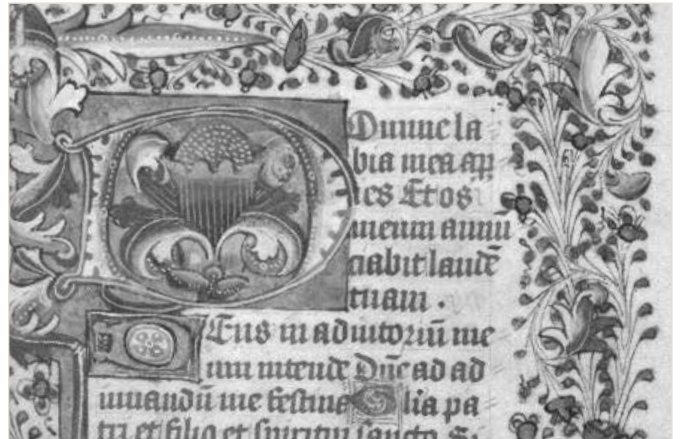 DOmine la
bia mea ap̄
ies Et os
meum annū
ciabit laudē
tuam .
DEus in adiutoriū me
um intende Dn̄e ad ad
iuuandū me festina Glia pa
tri et filio et spiritui sancto S